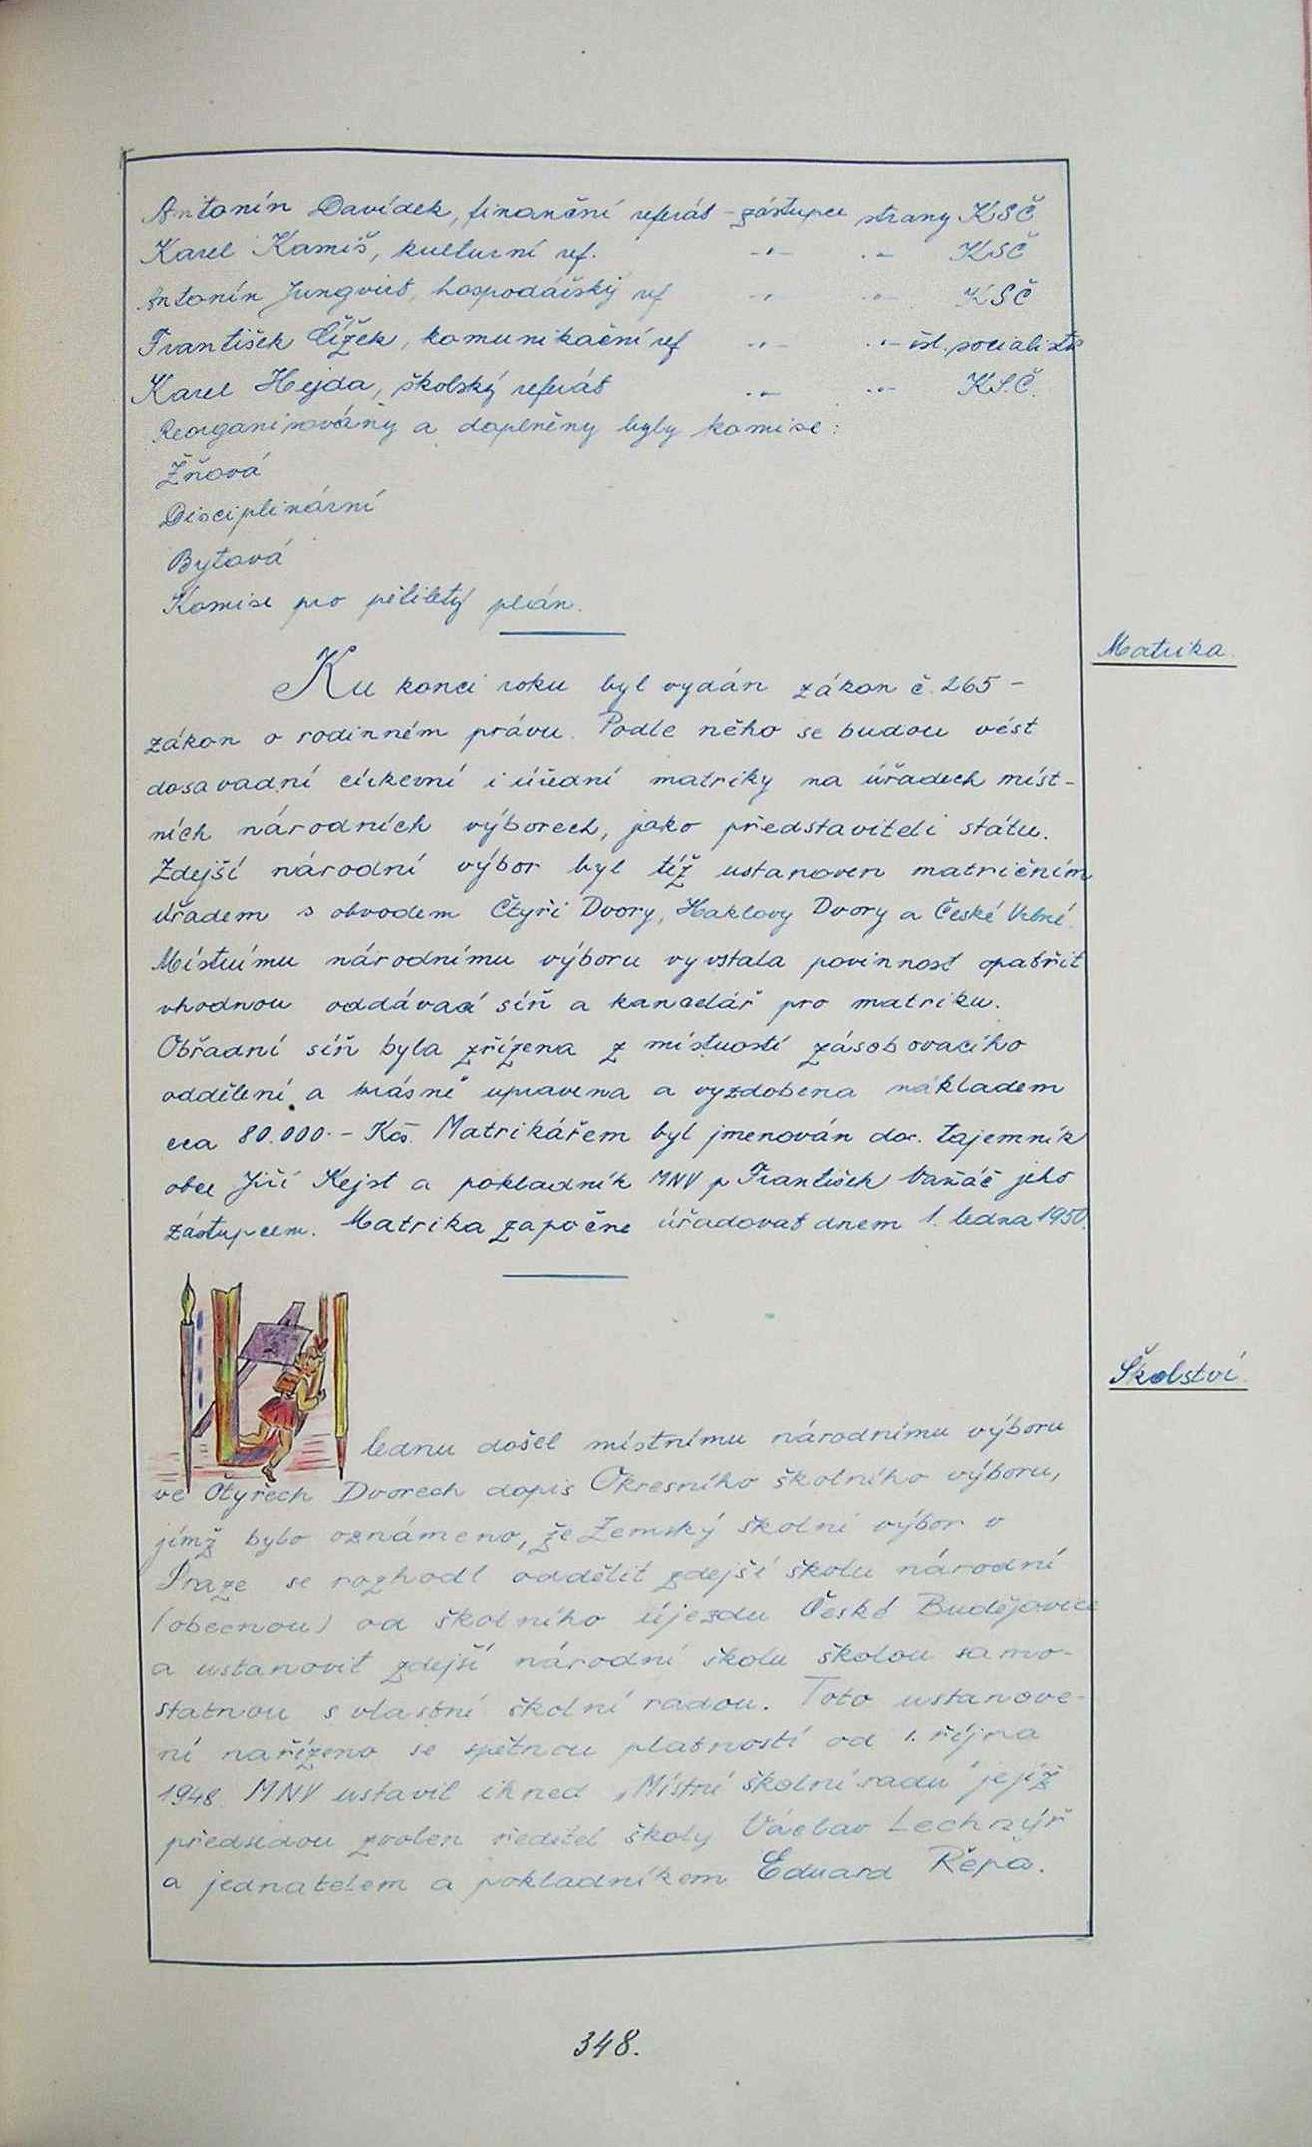 Antonín Davídek, finanční referát - zástupce strany KSČ
Karel Kamiš, kulturní ref. -"- -"- KSČ
Antonín Jungvirt, hospodářský ref -"- -"- KSČ
František Čížek, komunikační ref -"- -"- čsl. socialistů
Karel Hejda, školský referát -"- -"- KSČ.
Reorganisovány a doplněny byly komise:
Žňová
Disciplinární
Bytová
Komise pro pětiletý plán.
Matrika.
Ku konci roku byl vydán zákon č. 265 -
zákon o rodinném právu. Podle něho se budou vést
dosavadní církevní i úřední matriky na úřadech míst-
ních národních výborech, jako představiteli státu.
Zdejší národní výbor byl též ustanoven matričním
úřadem s obvodem Čtyři Dvory, Haklovy Dvory a České Vrbné.
Místnímu národnímu výboru vyvstala povinnost opatřit
vhodnou oddávací síň a kancelář pro matriku.
Obřadní síň byla zřízena z místností zásobovacího
oddělení a krásně upravena a vyzdobena nákladem
cca 80.000.- Kčs. Matrikářem byl jmenován dos. tajemník
obce Jiří Kejst a pokladník MNV p František Vaňáč jeho
zástupcem. Matrika započne úřadovat dnem 1. ledna 1950.
Školství.
V lednu došel místnímu národnímu výboru
ve Čtyřech Dvorech dopis Okresního školního výboru,
jímž bylo oznámeno, že Zemský školní výbor v
Praze se rozhodl oddělit zdejší školu národní
(obecnou) od školního újezdu České Budějovice
a ustanovit zdejší národní školu školou samo-
statnou s vlastní školní radou. Toto ustanove-
ní nařízeno se zpětnou platností od 1. října
1948. MNV ustavil ihned "Místní školní radu" jejíž
předsedou zvolen ředitel školy Václav Lechnýř
a jednatelem a pokladníkem Eduard Řepa.
348.